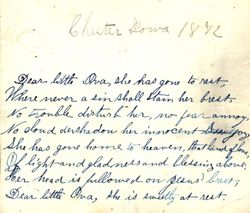 Chester Iowa 1872
Dear little Ova, she has gone to rest,
Where never a sin shall stain her brest.
No trouble disturb her, no fear annoy,
No cloud oershadow her innocent joy,
She has gone to heaven, that land of love,
Of light and gladness and blessing alone,
Her head is pillowed on Jesus' brest,
Dear little Ova, she is sweetly at rest.